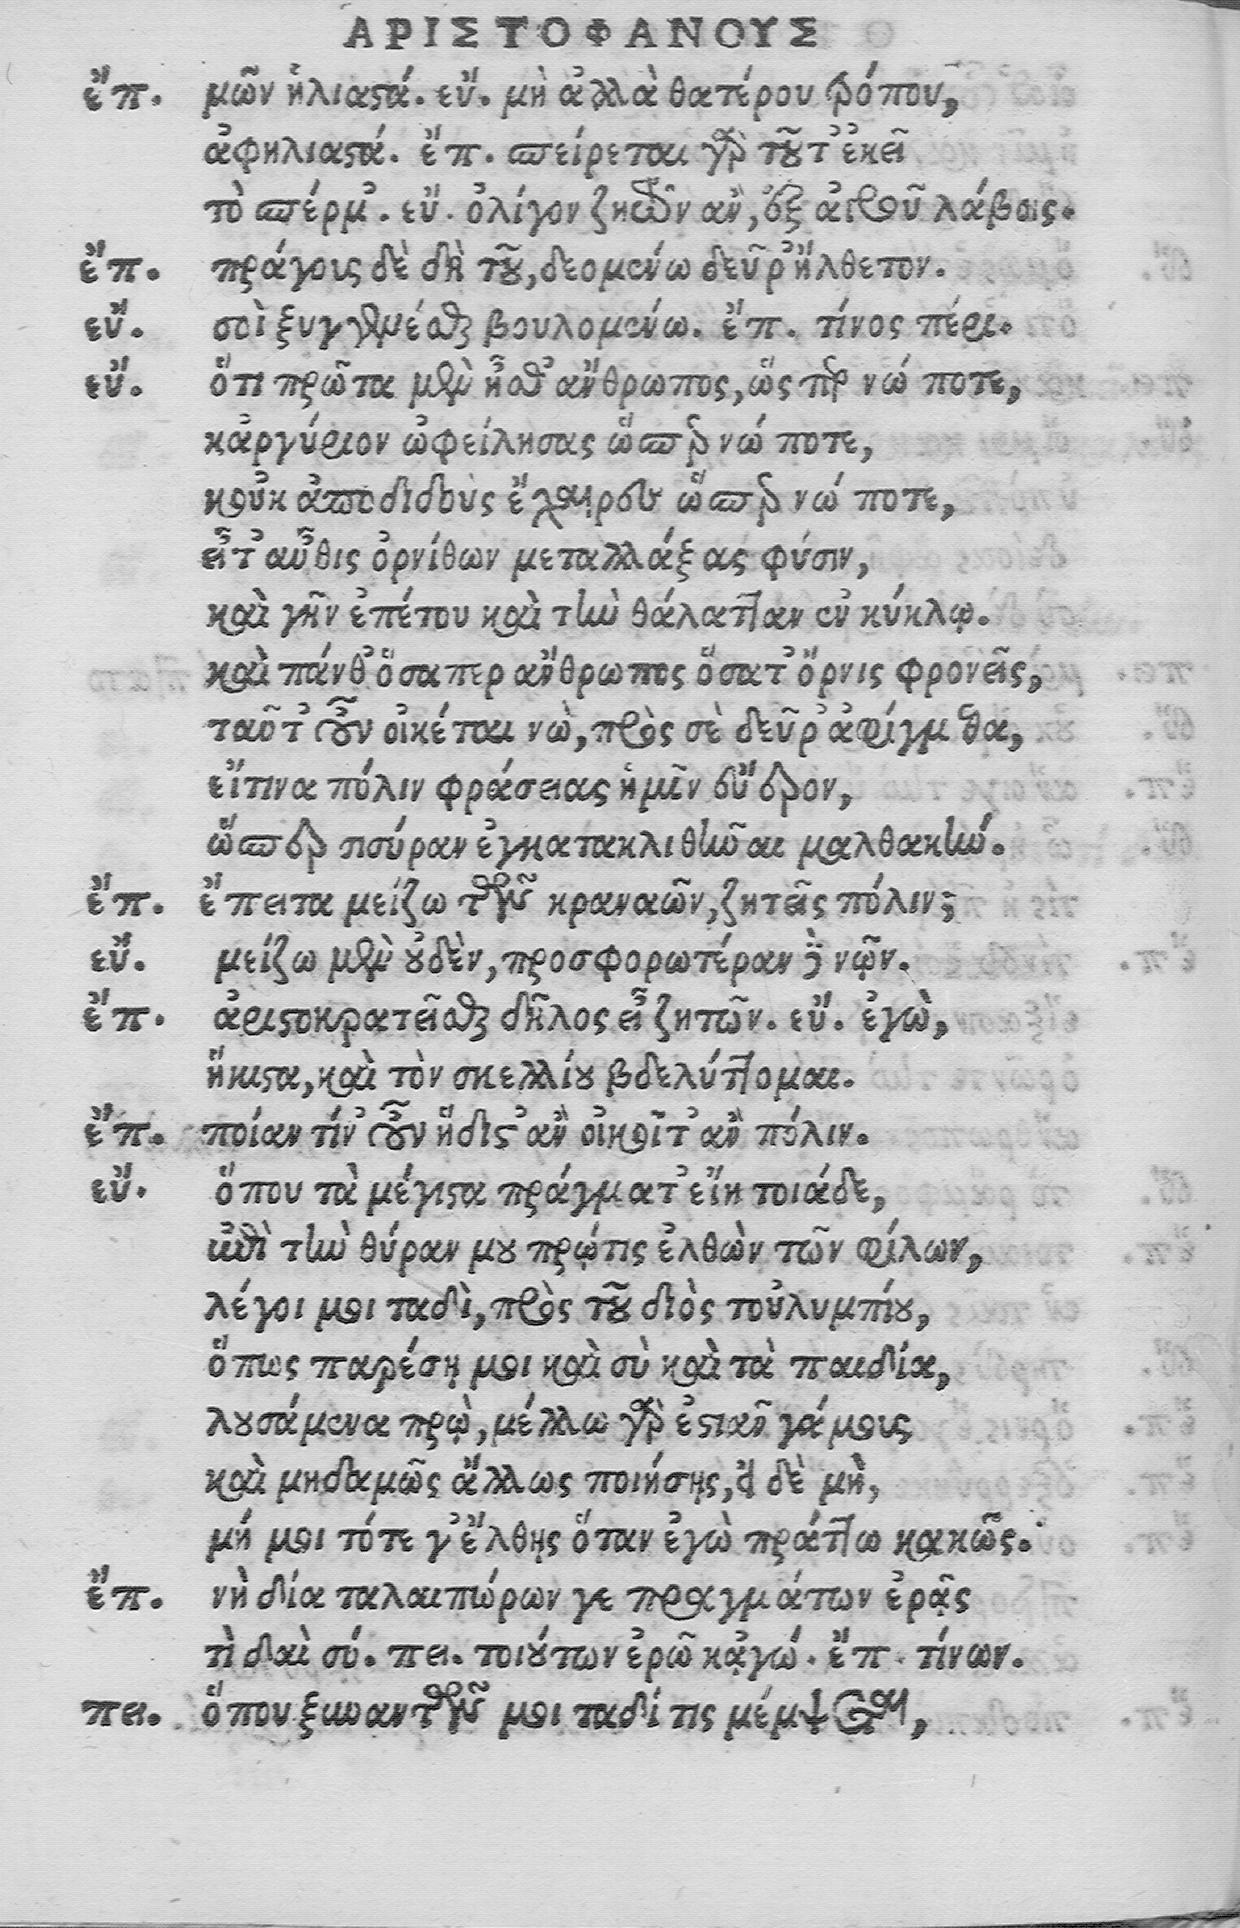 ΑΡΙΣΤΟΦΑΝΟΥΣ
ἔπ. μῶν ἡλιαστά. εὔ. μὴ ἀλλὰ θατέρου τρόπου,
ἀφηλιαστά. ἔπ. σπείρεται γὰρ τοῦτ' ἐκεῖ
τὸ σπέρμ'. εὔ. ὀλίγον ζητῶν ἂν, ἐξ ἀγροῦ λάβοις.
ἔπ. πράγους δὲ δὴ τοῦ, δεομένω δεῦρ' ἤλθετον.
εὔ. σοὶ ξυγγενέσθαι βουλομένω. ἔπ. τίνος πέρι.
εὔ. ὅτι πρῶτα μὲν ἦσθ' ἄνθρωπος, ὥσπερ νώ ποτε,
κἀργύριον ὠφείλησας ὥσπερ νώ ποτε,
κοὐκ ἀποδιδοὺς ἔχαιρες ὥσπερ νώ ποτε,
εἶτ' αὖθις ὀρνίθων μεταλλάξας φύσιν,
καὶ γῆν ἐπέτου καὶ τὴν θάλατταν ἐν κύκλῳ.
καὶ πάνθ' ὅσαπερ ἄνθρωπος ὅσα τ' ὄρνις φρονεῖς,
ταῦτ' οὖν οἰκέται νὼ, πρὸς σὲ δεῦρ' ἀφίγμεθα,
εἴ τινα πόλιν φράσειας ἡμῖν εὔερον,
ὥσπερ σισύραν ἐγκατακλιθῆναι μαλθακήν.
ἔπ. ἔπειτα μείζω τῶν κραναῶν, ζητεῖς πόλιν;
εὔ. μείζω μὲν οὐδὲν, προσφορωτέραν δὲ νῷν.
ἔπ. ἀριστοκρατεῖσθαι δῆλος εἶ ζητῶν. εὔ. ἐγὼ,
ἥκιστα, καὶ τὸν σκελλίου βδελύττομαι.
ἔπ. ποίαν τίν' οὖν ἥδιστ' ἂν οἰκοῖτ' ἂν πόλιν.
εὔ. ὅπου τὰ μέγιστα πράγματ' εἴη τοιάδε,
ἐπὶ τὴν θύραν μου πρῴ τις ἐλθὼν τῶν φίλων,
λέγοι μοι ταδὶ, πρὸς τοῦ διὸς τοὐλυμπίου,
ὅπως παρέσῃ μοι καὶ σὺ καὶ τὰ παιδία,
λουσάμενα πρῲ, μέλλω γὰρ ἑστιᾶν γάμους
καὶ μηδαμῶς ἄλλως ποιήσῃς, εἰ δὲ μὴ,
μή μοι τότε γ' ἔλθῃς ὅταν ἐγὼ πράττω κακῶς.
ἔπ. νὴ δία ταλαιπώρων γε πραγμάτων ἐρᾷς
τὶ δαὶ σύ. πει. τοιούτων ἐρῶ κᾀγώ. ἔπ. τίνων.
πει. ὅπου ξυναντῶν μοι ταδί τις μέμψεται,